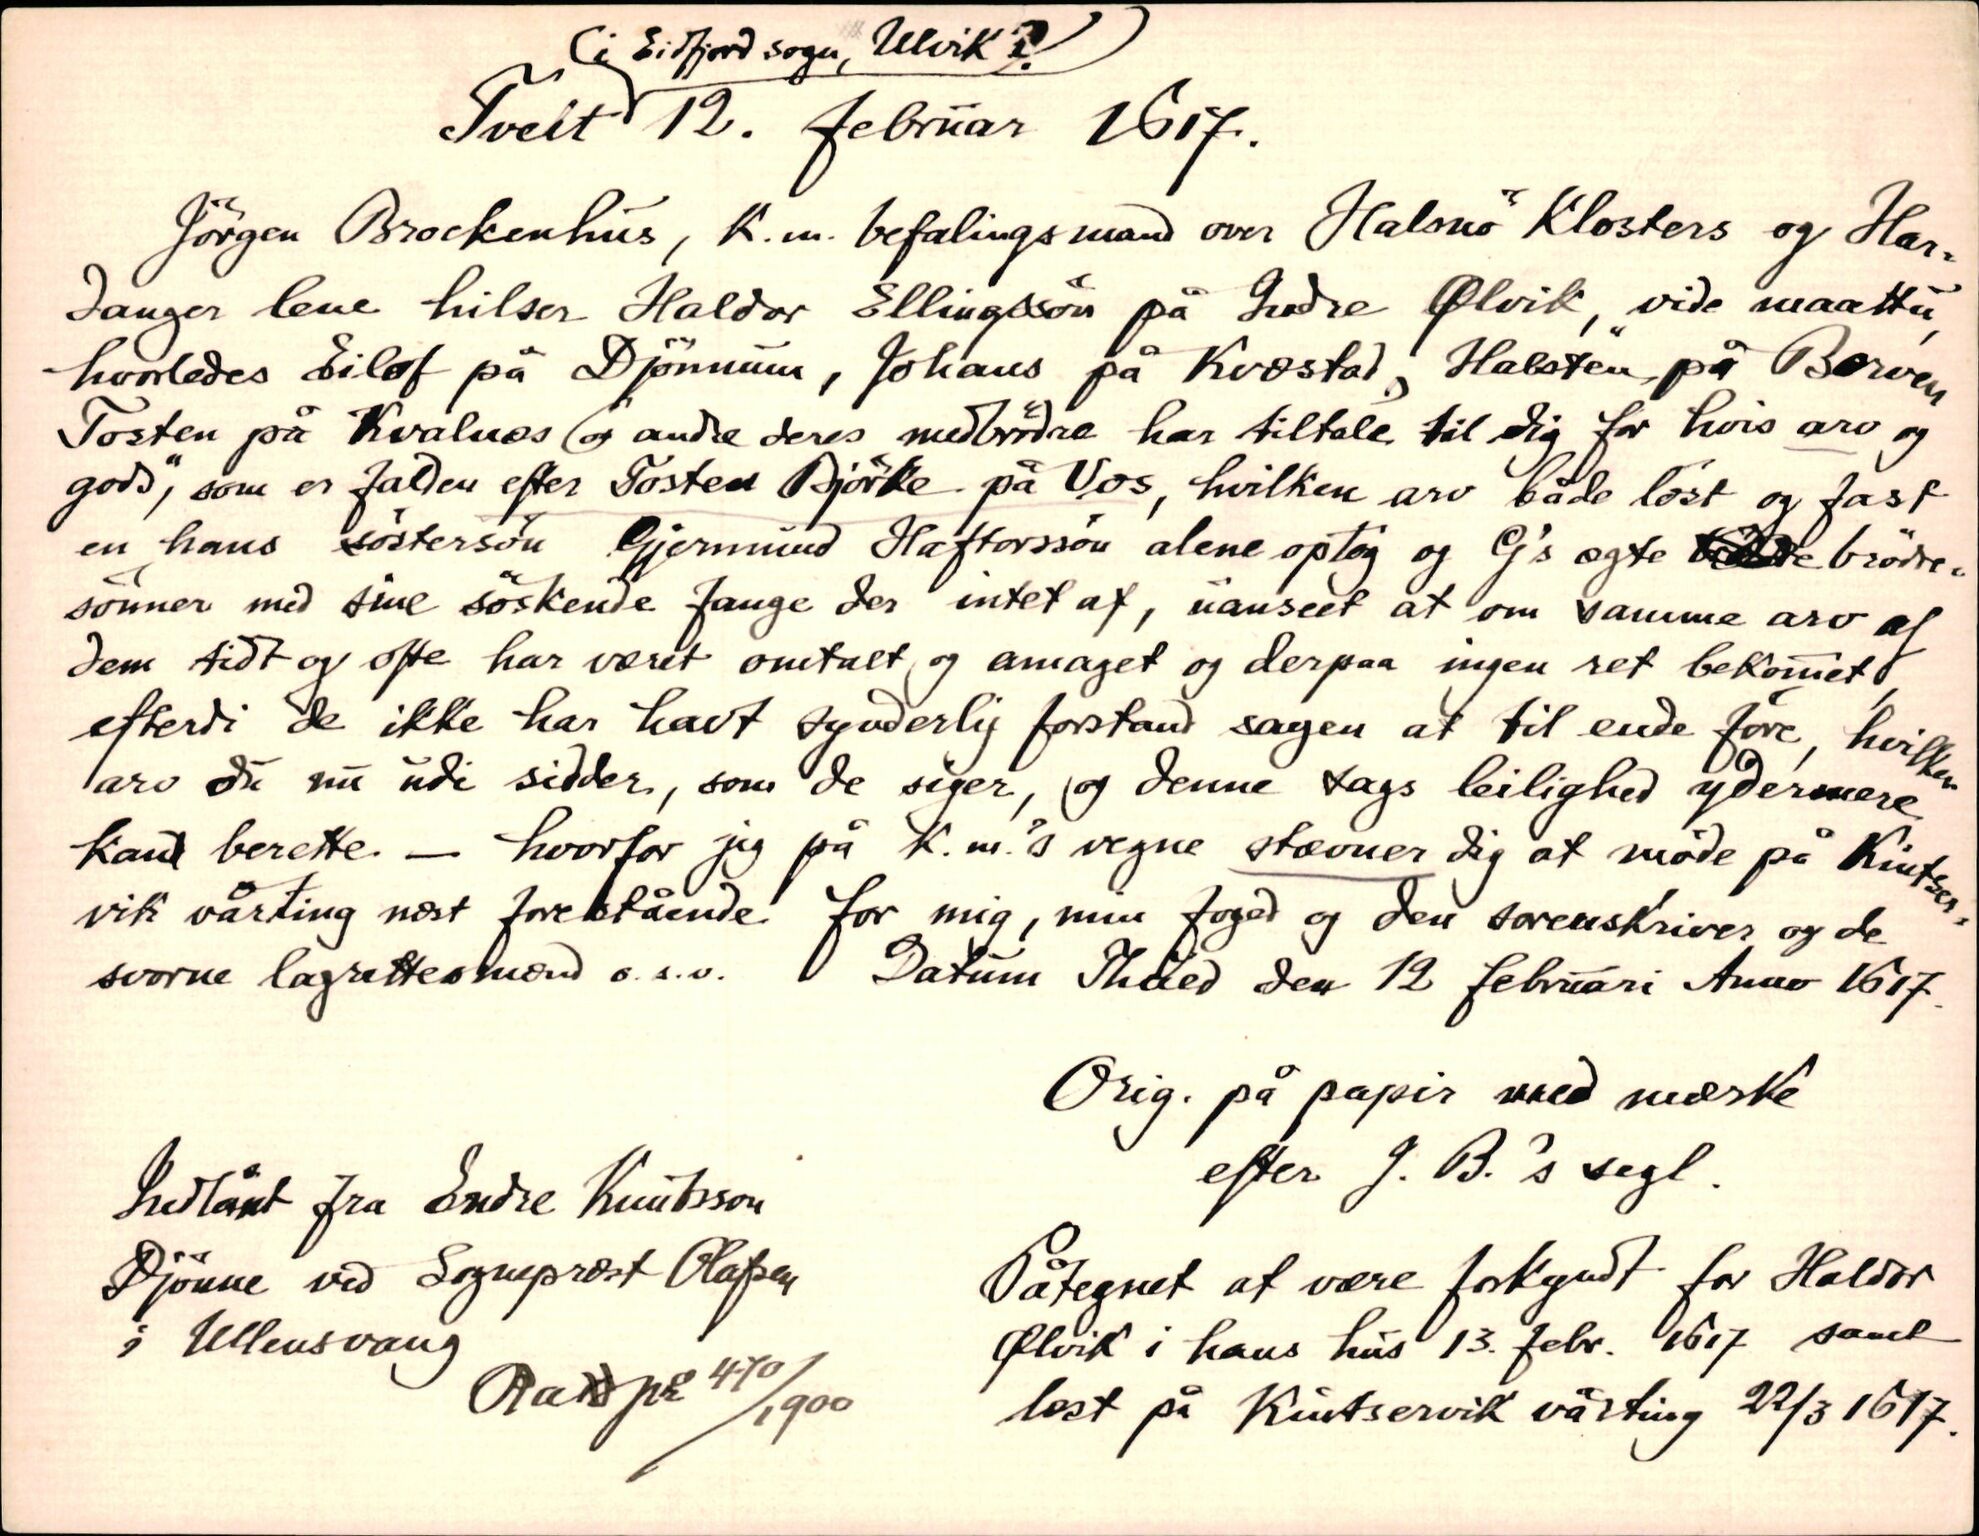 (i Eidfjord sogn, Ulvik?)
Tveit 12. februar 1617.
Jörgen Brockenhus, K. m. befalingsmand over Halsnö Klosters og Har-
danger lene hilser Haldor Ellingssön på Indre Ølvik, vide maattu,
hvorledes Eilof på Djönnum, Johans på Kvæstad, Halsten på Berven
Tosten på Kvalnes og andre deres medbrödre har tiltale til dig for hvis arv og
gods, som er falden efter Tosten Björke på Vos, hvilken arv både löst og fast
en hans söstersön Gjermund Haftorssön alene optog og G's ægte brödre-
sönner med sine söskende fange der intet af, uanseet at om samme arv af
dem tidt og ofte har været omtalt og amaget og derpaa ingen ret bekommet,
efterdi de ikke har havt synderlig forstand sagen at til ende före, hvilken
arv du nu udi sidder, som de siger, og denne sags leilighed ydermere
kand berette. — hvorfor jeg på K. m.'s vegne stævner dig at möde på Kintser-
vik vårting næst forestående for mig, min foged og den sorenskriver og de
svorne lagrettesmænd o. s. v. Datum Thued den 12 februari Anno 1617.
Orig. på papir med mærke
efter J. B.'s segl.
Indlånt fra Endre Knutsson
Djönne ved Sogneprest Olafsen
i Ullensvang
470/1900
Påtegnet at være forkyndt for Haldor
Ølvik i hans hus 13. febr. 1617 samt
læst på Kintservik vårting 22/3 1617.